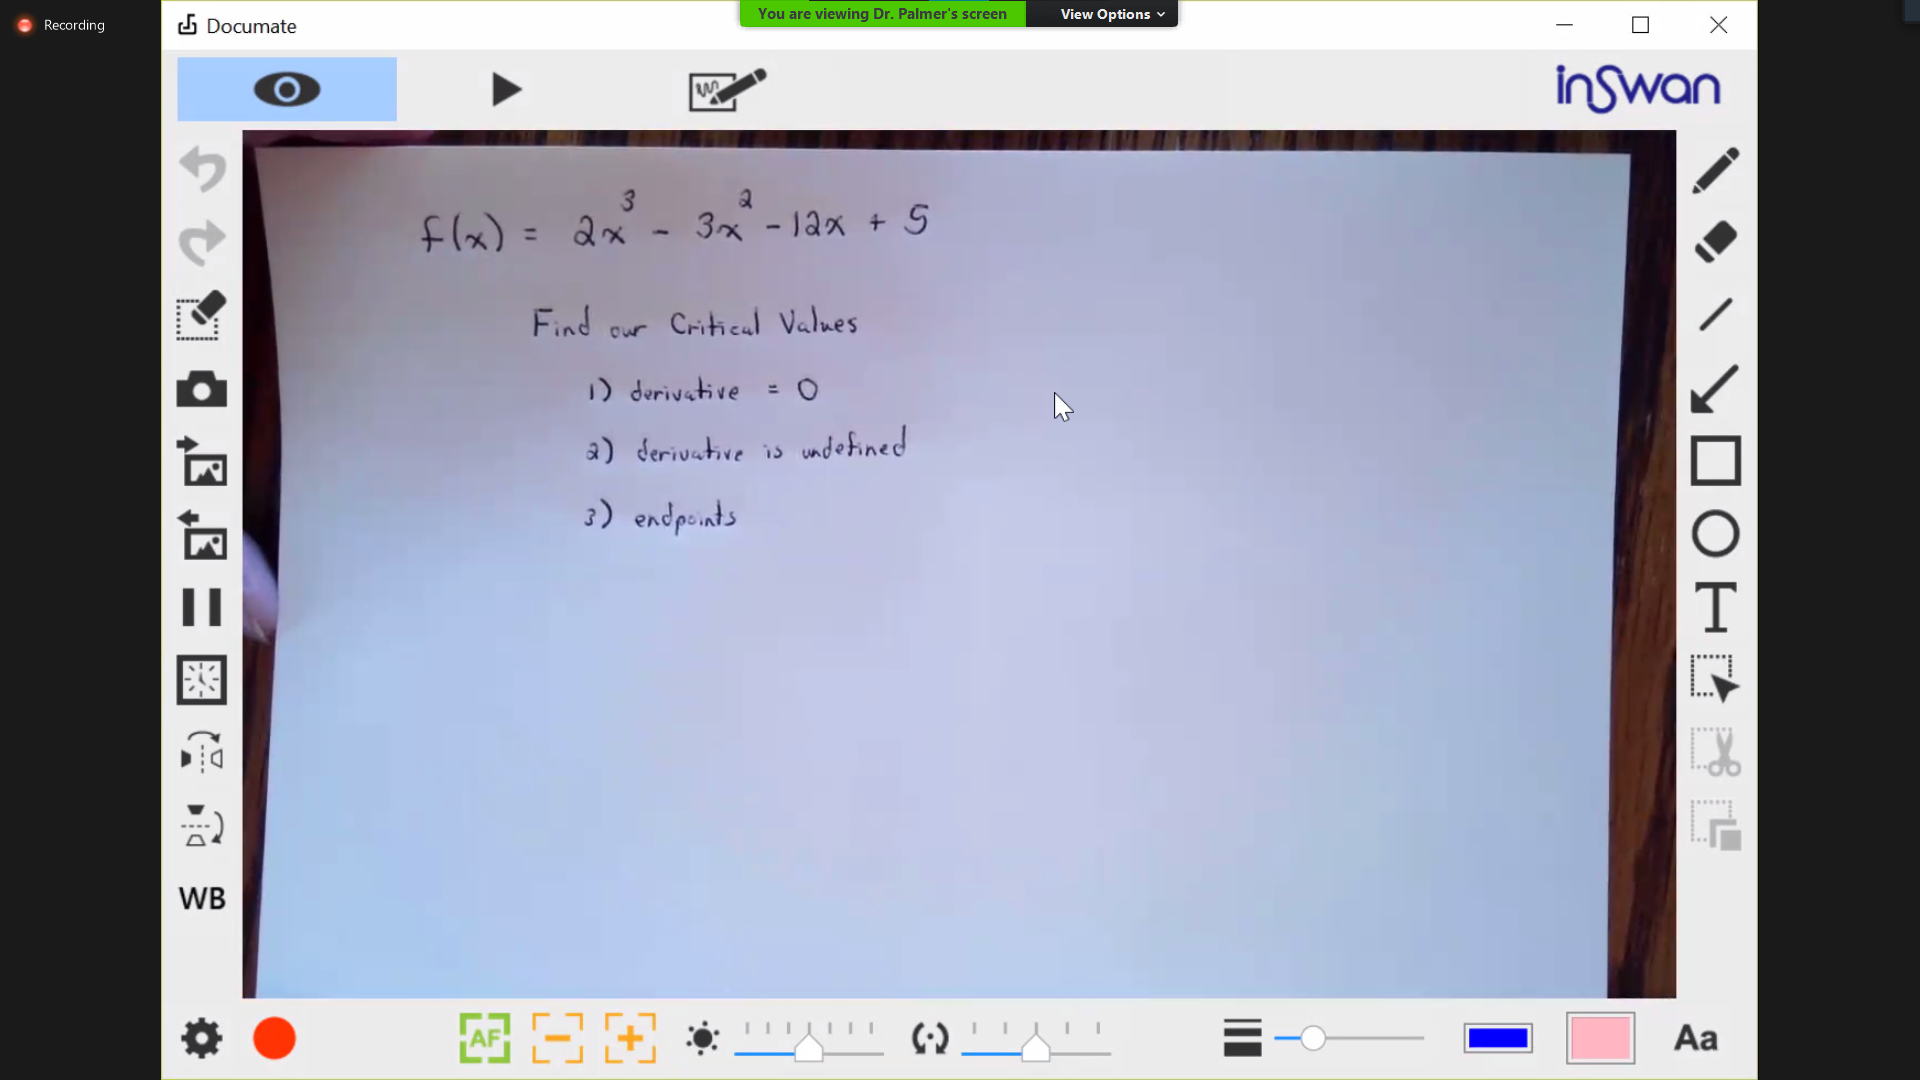 Recording
You are viewing Dr. Palmer's screen
View Options
Documate
inSwan
f(x) = 2x³ - 3x² - 12x + 5
Find our Critical Values
1) derivative = 0
2) derivative is undefined
3) endpoints
WB
T
AF
Aa